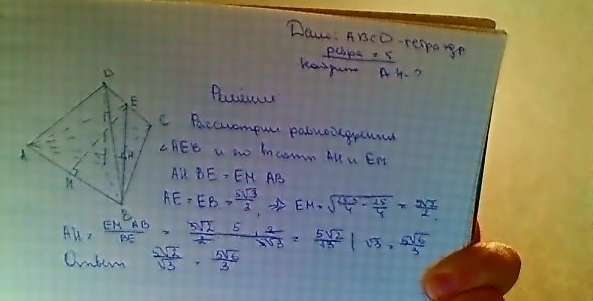 Дано: ABCD - тетраэдр
ребра = 5
Найти AH - ?
Решение
D
E
C
A
H
M
B
Рассмотрим равнобедрен
△AEB и его высоты AH и EM
AH BE = EM AB
AE = EB = 5√3/3, ⇒ EM = √(/4 - 25/4) = 5√2/2.
AH = EM AB/BE = 5√2/2 · 5 · 2/5√3 = 5√2/√3 | √3 = 5√6/3
Ответ 5√2/√3 = 5√6/3